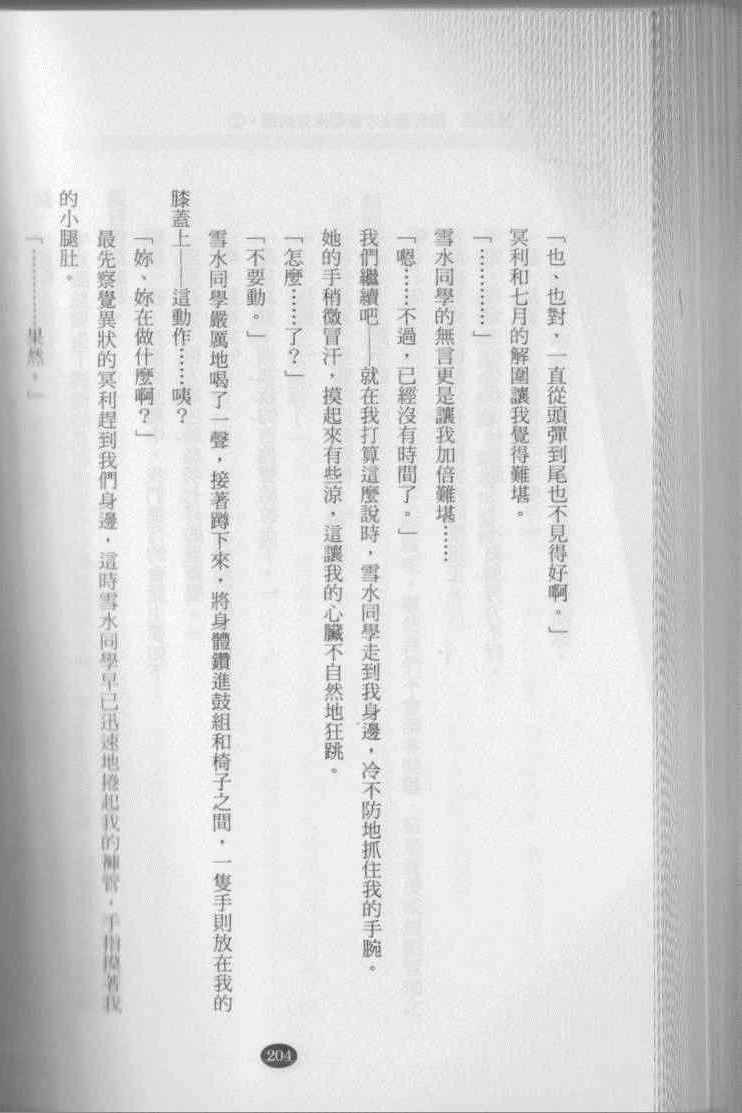 「也、也對，一直從頭彈到尾也不見得好啊。」
冥利和七月的解圍讓我覺得難堪。
「…………」
雪水同學的無言更是讓我加倍難堪……
「嗯……不過，已經沒有時間了。」
我們繼續吧——就在我打算這麼說時，雪水同學走到我身邊，冷不防地抓住我的手腕。
她的手稍微冒汗，摸起來有些涼，這讓我的心臟不自然地狂跳。
「怎麼……了？」
「不要動。」
雪水同學嚴厲地喝了一聲，接著蹲下來，將身體鑽進鼓組和椅子之間，一隻手則放在我的
膝蓋上——這動作……咦？
「妳、妳在做什麼啊？」
最先察覺異狀的冥利趕到我們身邊，這時雪水同學早已迅速地捲起我的褲管，手指摸著我
的小腿肚。
「…………果然。」
204